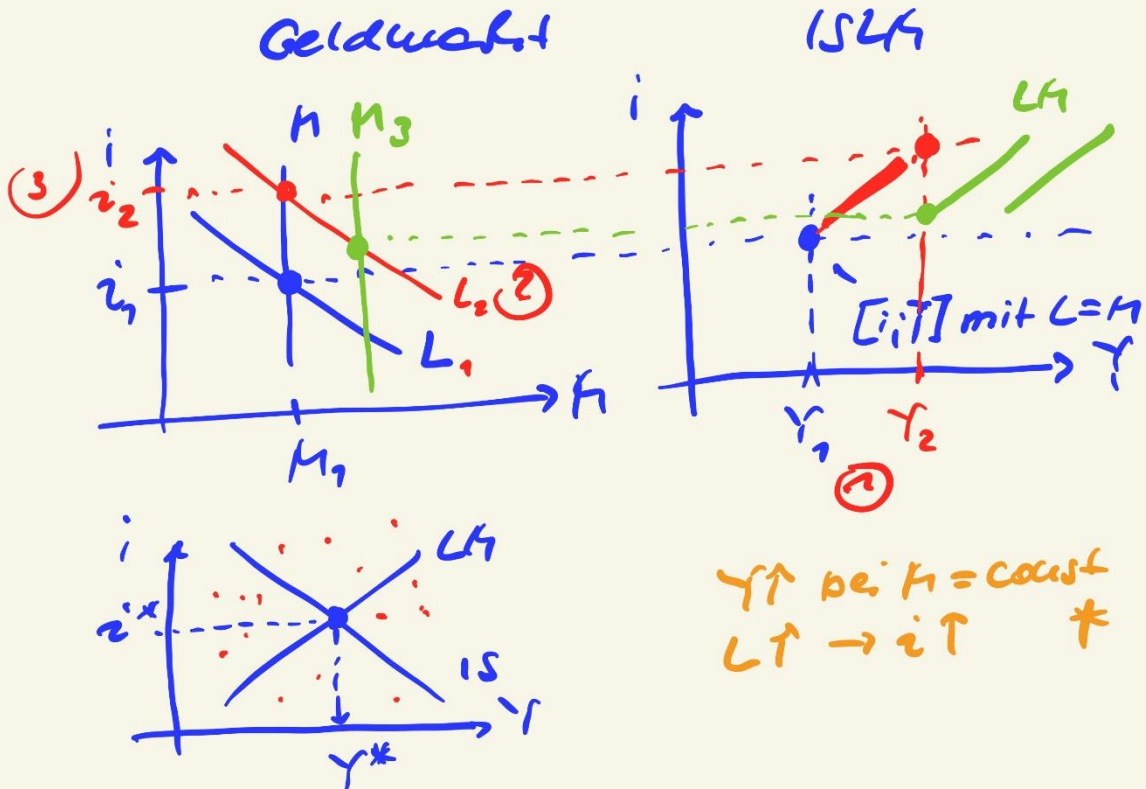 Geldmarkt
ISLM
i
M
M3
③
i2
i1
L2 ②
L1
M
M1
i
LM
[i,Y] mit L=M
Y
Y1
Y2
①
i
LM
i*
IS
Y
Y*
Y↑ bei M = const
L↑ → i↑ *